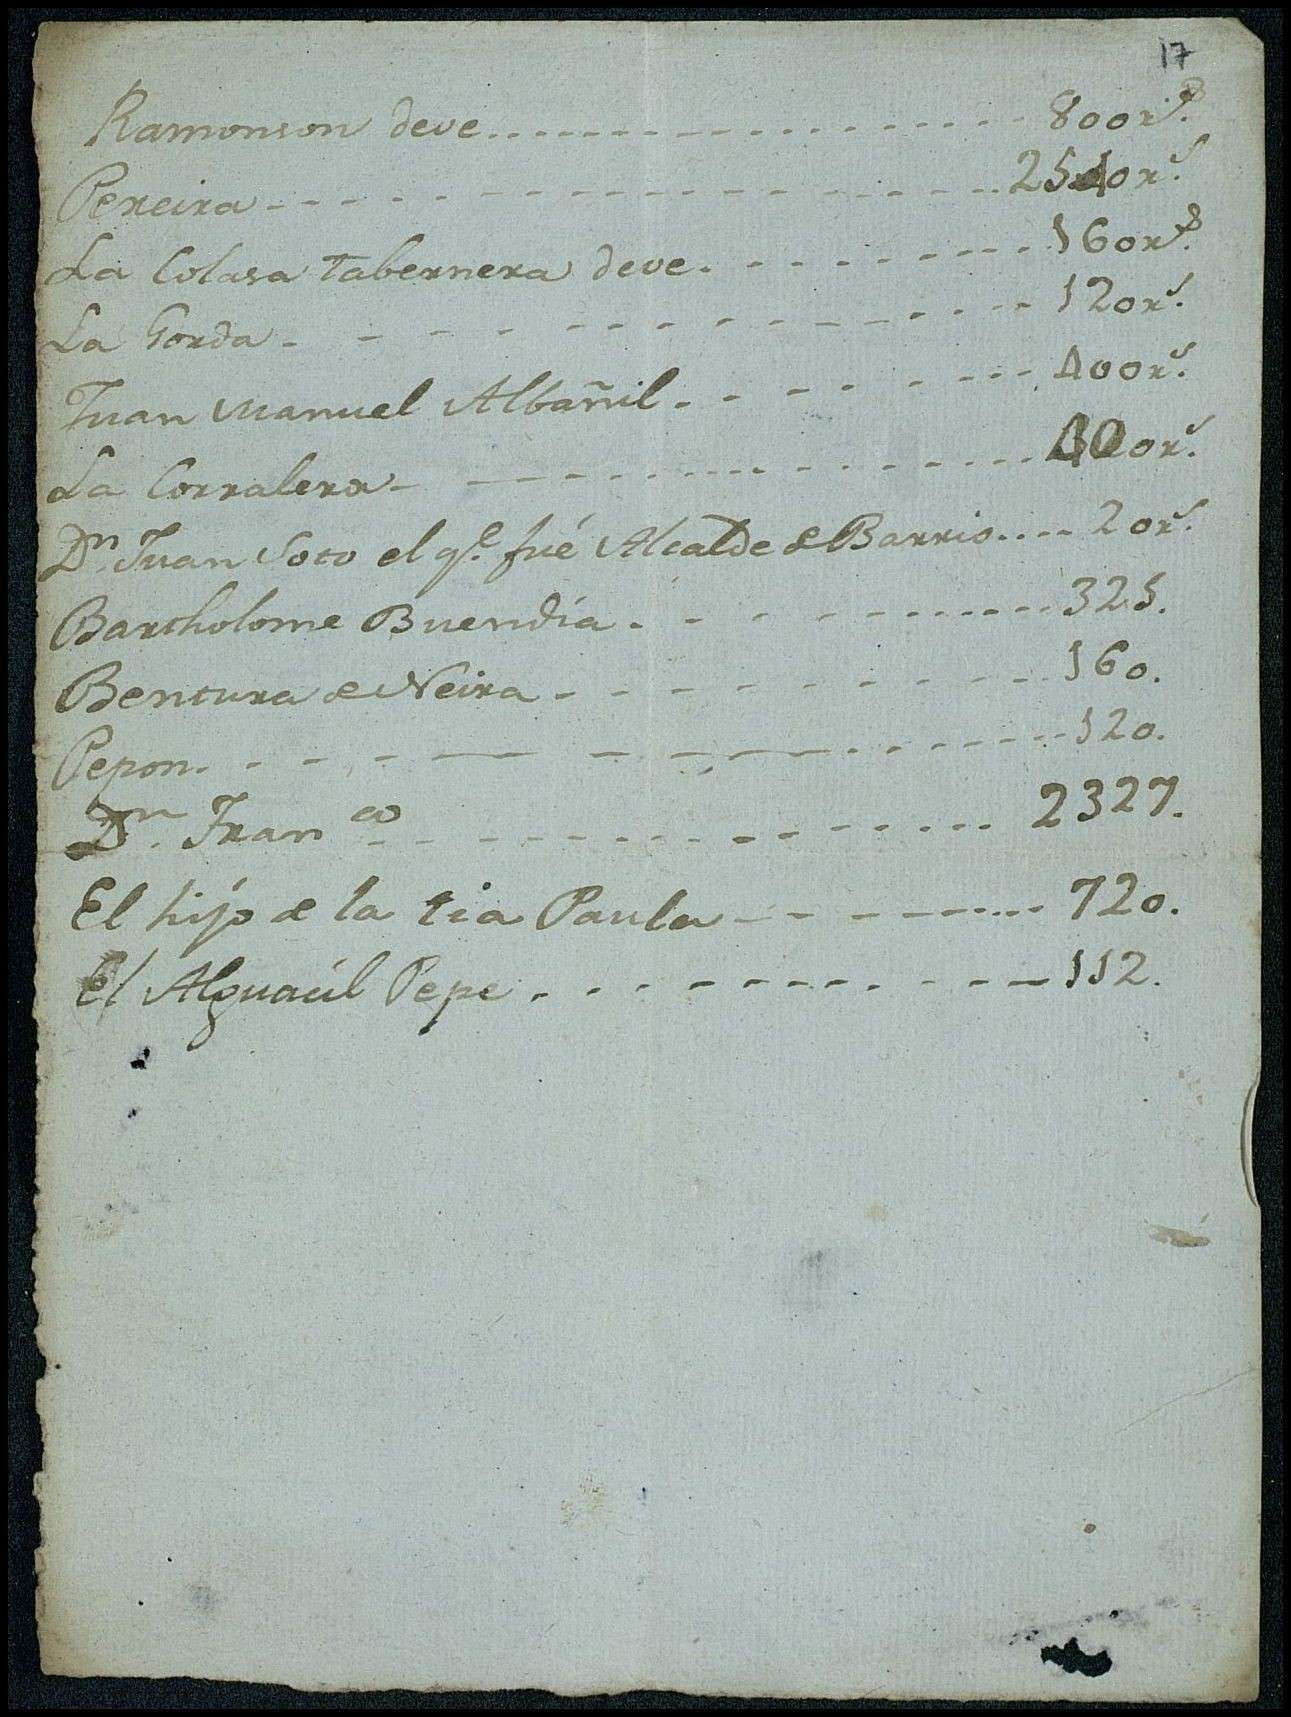 17
Ramonson deve.................. 800 r.s
Pereira - - - - - - - - - - - - - - - - 2540 r.s
La Colasa tabernera deve. - - - - - - - - 160 r.s
La Gorda - - - - - - - - - - - - - - - 120 r.s
Juan Manuel Albañil - - - - - - - - - 400 r.s
La Corralera - - - - - - - - - - - - - r.s
Dn. Juan Soto el q.e fué Alcalde de Barrio.... 20 r.s
Bartholome Buendia - - - - - - - - - - 325.
Bentura de Neira - - - - - - - - - - - 160.
Pepon. - - - - - - - - - - - - - - - 120.
Dn. Fran co - - - - - - - - - - - - - 2327.
El hijo de la tia Paula - - - - - - - - - 720.
El Alguacil Pepe . - - - - - - - - - - 112.